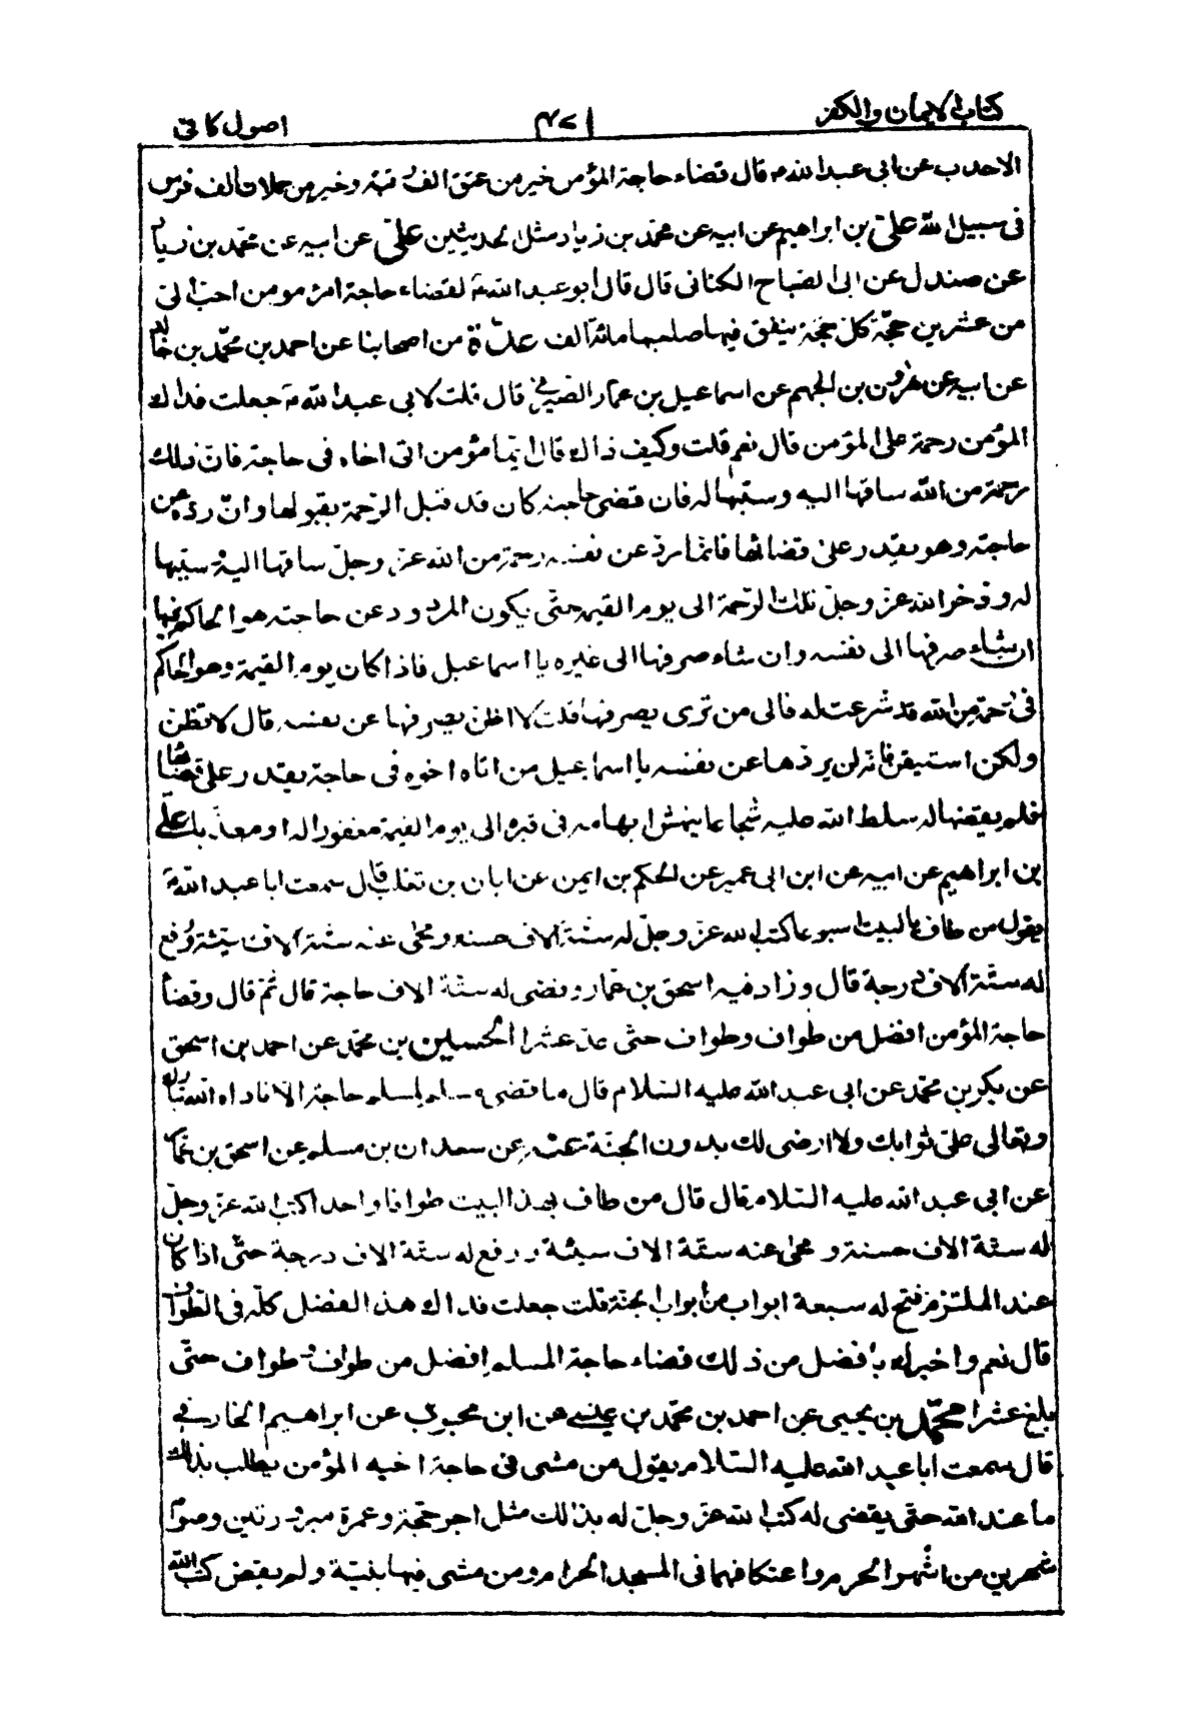 كتاب الايمان والكفر
اصول كافى
الاحدب عن ابى عبد الله ع قال قضاء حاجة المؤمن خير من عتق الف رقبة وخير من حملان الف فرس
فى سبيل الله على بن ابراهيم عن ابيه عن محمد بن زياد مثل الحديثين على عن ابيه عن محمد بن زياد
عن صندل عن ابى الصباح الكنانى قال قال ابو عبد الله ع لقضاء حاجة امرء مومن احب الى
من عشرين حجة كل حجة ينفق فيها صاحبها مائة الف عدة من اصحابنا عن احمد بن محمد بن خالد
عن ابيه عن هرون بن الجهم عن اسماعيل بن عمار الصيرفى قال قلت لابى عبد الله ع جعلت فداك
المؤمن رحمة على المؤمن قال نعم قلت وكيف ذاك قال ايما مؤمن اتى اخاه فى حاجة فان ذلك
رحمة من الله ساقها اليه وسببها له فان قضى حاجته كان قد قبل الرحمة بقبولها وان رده عن
حاجته وهو يقدر على قضائها فانما رد عن نفسه رحمة من الله عز وجل ساقها اليه وسببها
له وذخر الله عز وجل تلك الرحمة الى يوم القيمة حتى يكون المردود عن حاجته هو الحاكم فيها
ان شاء صرفها الى نفسه وان شاء صرفها الى غيره يا اسماعيل فاذا كان يوم القيمة وهو الحاكم
فى رحمة من الله قد شرعت له فالى من ترى يصرفها قلت لا اظن يصرفها عن نفسه قال لا تظن
ولكن استيقن فانه لن يردها عن نفسه يا اسماعيل من اتاه اخوه فى حاجة يقدر على قضائها
فلم يقضها له سلط الله عليه شجاعا ينهش ابهامه فى قبره الى يوم القيمة مغفورا له او معذبا على
بن ابراهيم عن ابيه عن ابن ابى عمير عن الحكم بن ايمن عن ابان بن تغلب قال سمعت ابا عبد الله ع
يقول من طاف بالبيت اسبوعا كتب الله عز وجل له ستة الاف حسنة ومحى عنه ستة الاف سيئة ورفع
له ستة الاف درجة قال وزاد فيه اسحق بن عمار وقضى له ستة الاف حاجة قال ثم قال وقضاء
حاجة المؤمن افضل من طواف وطواف حتى عد عشرا الحسين بن محمد عن احمد بن اسحق
عن بكر بن محمد عن ابى عبد الله عليه السلام قال ما قضى مسلم لمسلم حاجة الا ناداه الله تبارك
وتعالى على ثوابك ولا ارضى لك بدون الجنة عنه عن سعدان بن مسلم عن اسحق بن عمار
عن ابى عبد الله عليه السلام قال قال من طاف بهذا البيت طوافا واحدا كتب الله عز وجل
له ستة الاف حسنة ومحى عنه ستة الاف سيئة ورفع له ستة الاف درجة حتى اذا كان
عند الملتزم فتح له سبعة ابواب من ابواب الجنة قلت جعلت فداك هذا الفضل كله فى الطواف
قال نعم واخبرك بافضل من ذلك قضاء حاجة المسلم افضل من طواف وطواف حتى
بلغ عشرا محمد بن يحيى عن احمد بن محمد بن عيسى عن ابن محبوب عن ابراهيم الخارفى
قال سمعت ابا عبد الله عليه السلام يقول من مشى فى حاجة اخيه المؤمن يطلب بذلك
ما عند الله حتى يقضى له كتب الله عز وجل له بذلك مثل اجر حجة وعمرة مبرورتين وصوم
شهرين من اشهر الحرم واعتكافهما فى المسجد الحرام ومن مشى فيها بنية ولم يقض كتب الله